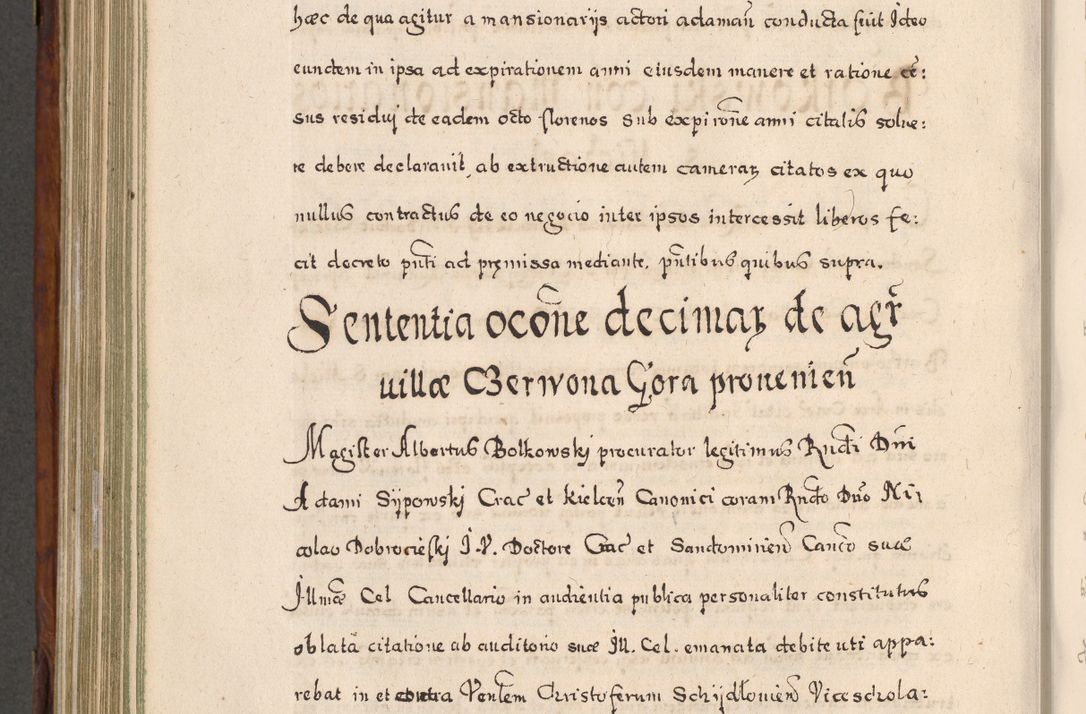 hæc de qua agitur a mansionarijs actori ad aman̄ conducta fuit Ideo
eundem in ipsa ad expirationem anni eiusdem manere et ratione cē:
sus residuj de eadem octo florenos sub expirōne anni citatis solue:
re debere declarauit, ab extructione autem cameraꝝ citatos ex quo
nullus contractus de eo negocio inter ipsos intercessit liberos fe:
cit decreto pn̄ti ad pręmissa mediante, pn̄tibus quibus supra.
Sententia ocōne decimaꝝ de agr̄
uillæ Czerwona Gora prouenien̄
Magister Albertus Bolkowskj procurator legitimus Rn̄di Dn̄i
Adami Sijpowskj Crac̄ et Kielcen̄ Canonici coram Rn̄do Dn̄o Ni:
colao Dobrocieskj I. V. Doctore Crac̄ et Sandomirien̄ Canc̄o suæ
Illmæ Cel Cancellario in audientia publica personaliter constitutus
oblatā citatione ab auditorio suæ Ill. Cel. emanata debite uti appa:
rebat in et contra Ven̄lem Christoferum Schijdlouien̄ Viceschola: